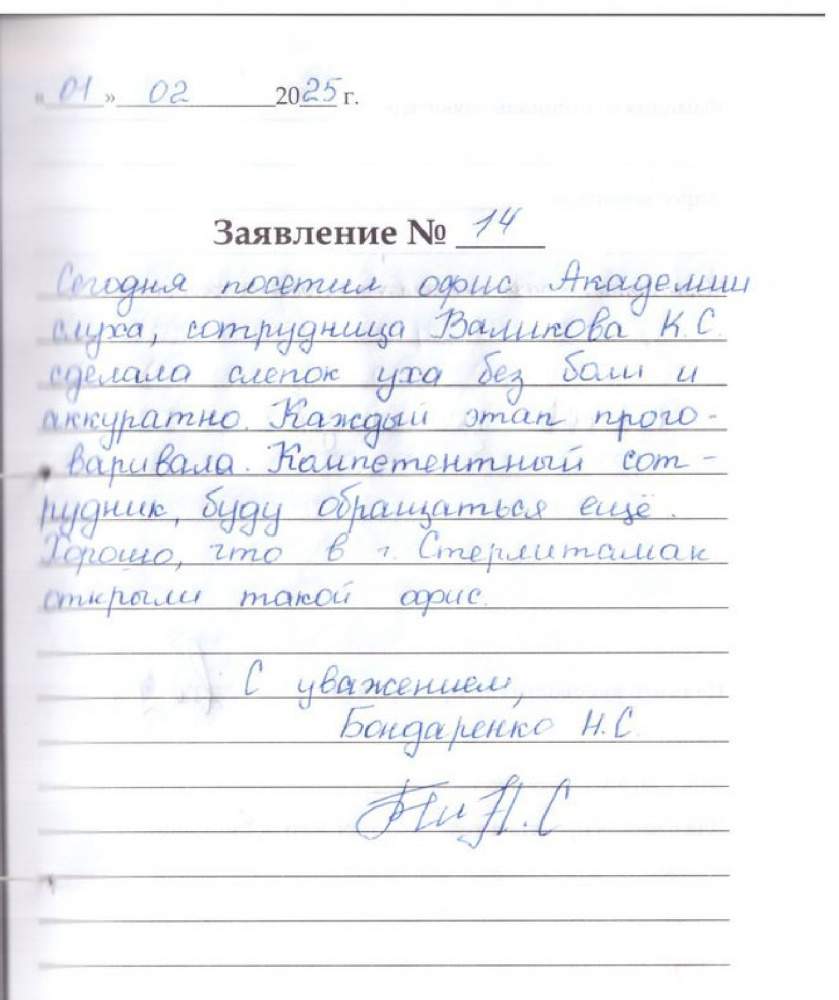 « 01 » 02 2025 г.
Заявление № 14
Сегодня посетил офис Академии
слуха, сотрудница Валикова К.С.
сделала слепок уха без боли и
аккуратно. Каждый этап прого-
варивала. Компетентный сот-
рудник, буду обращаться ещё.
Хорошо, что в г. Стерлитамак
открыли такой офис.
С уважением,
Бондаренко Н.С.